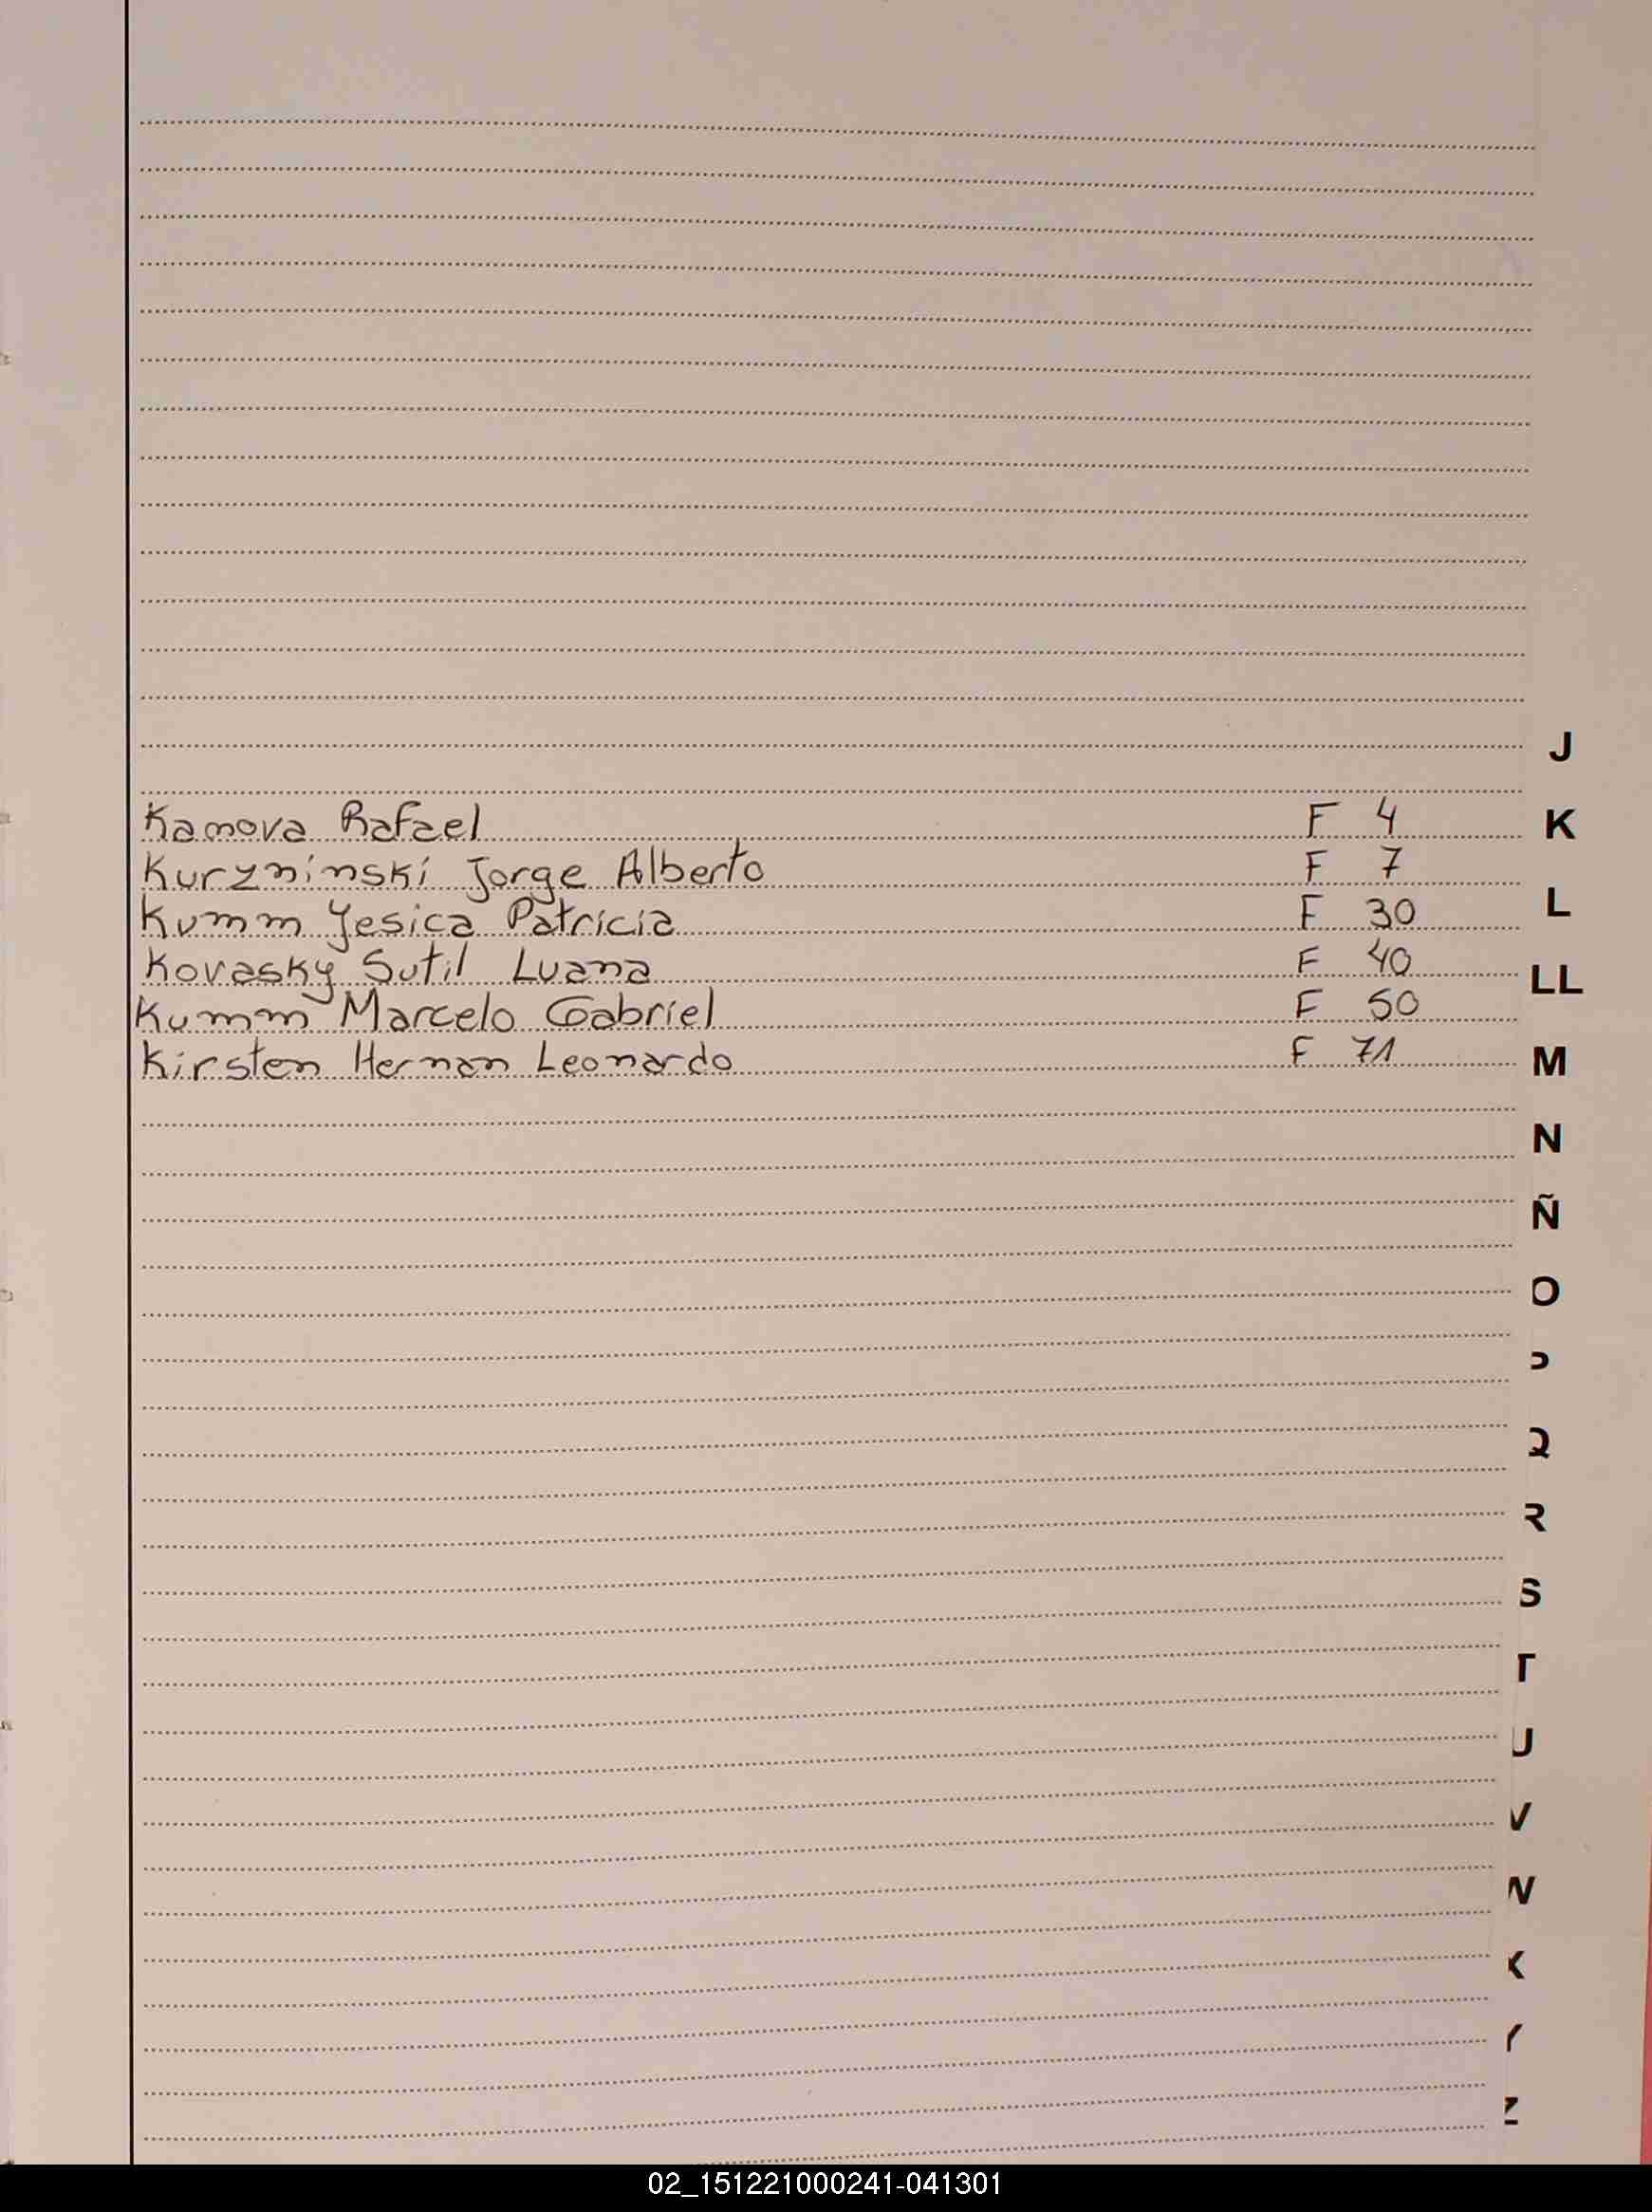 J
Kamova Rafael F 4
K
Kurzninski Jorge Alberto F 7
L
Kumm Yesica Patricia F 30
Kovasky Sutil Luana F 40
LL
Kumm Marcelo Gabriel F 50
Kirsten Hernan Leonardo F 71
M
N
Ñ
O
P
Q
R
S
T
U
V
W
X
Y
Z
02_151221000241-041301